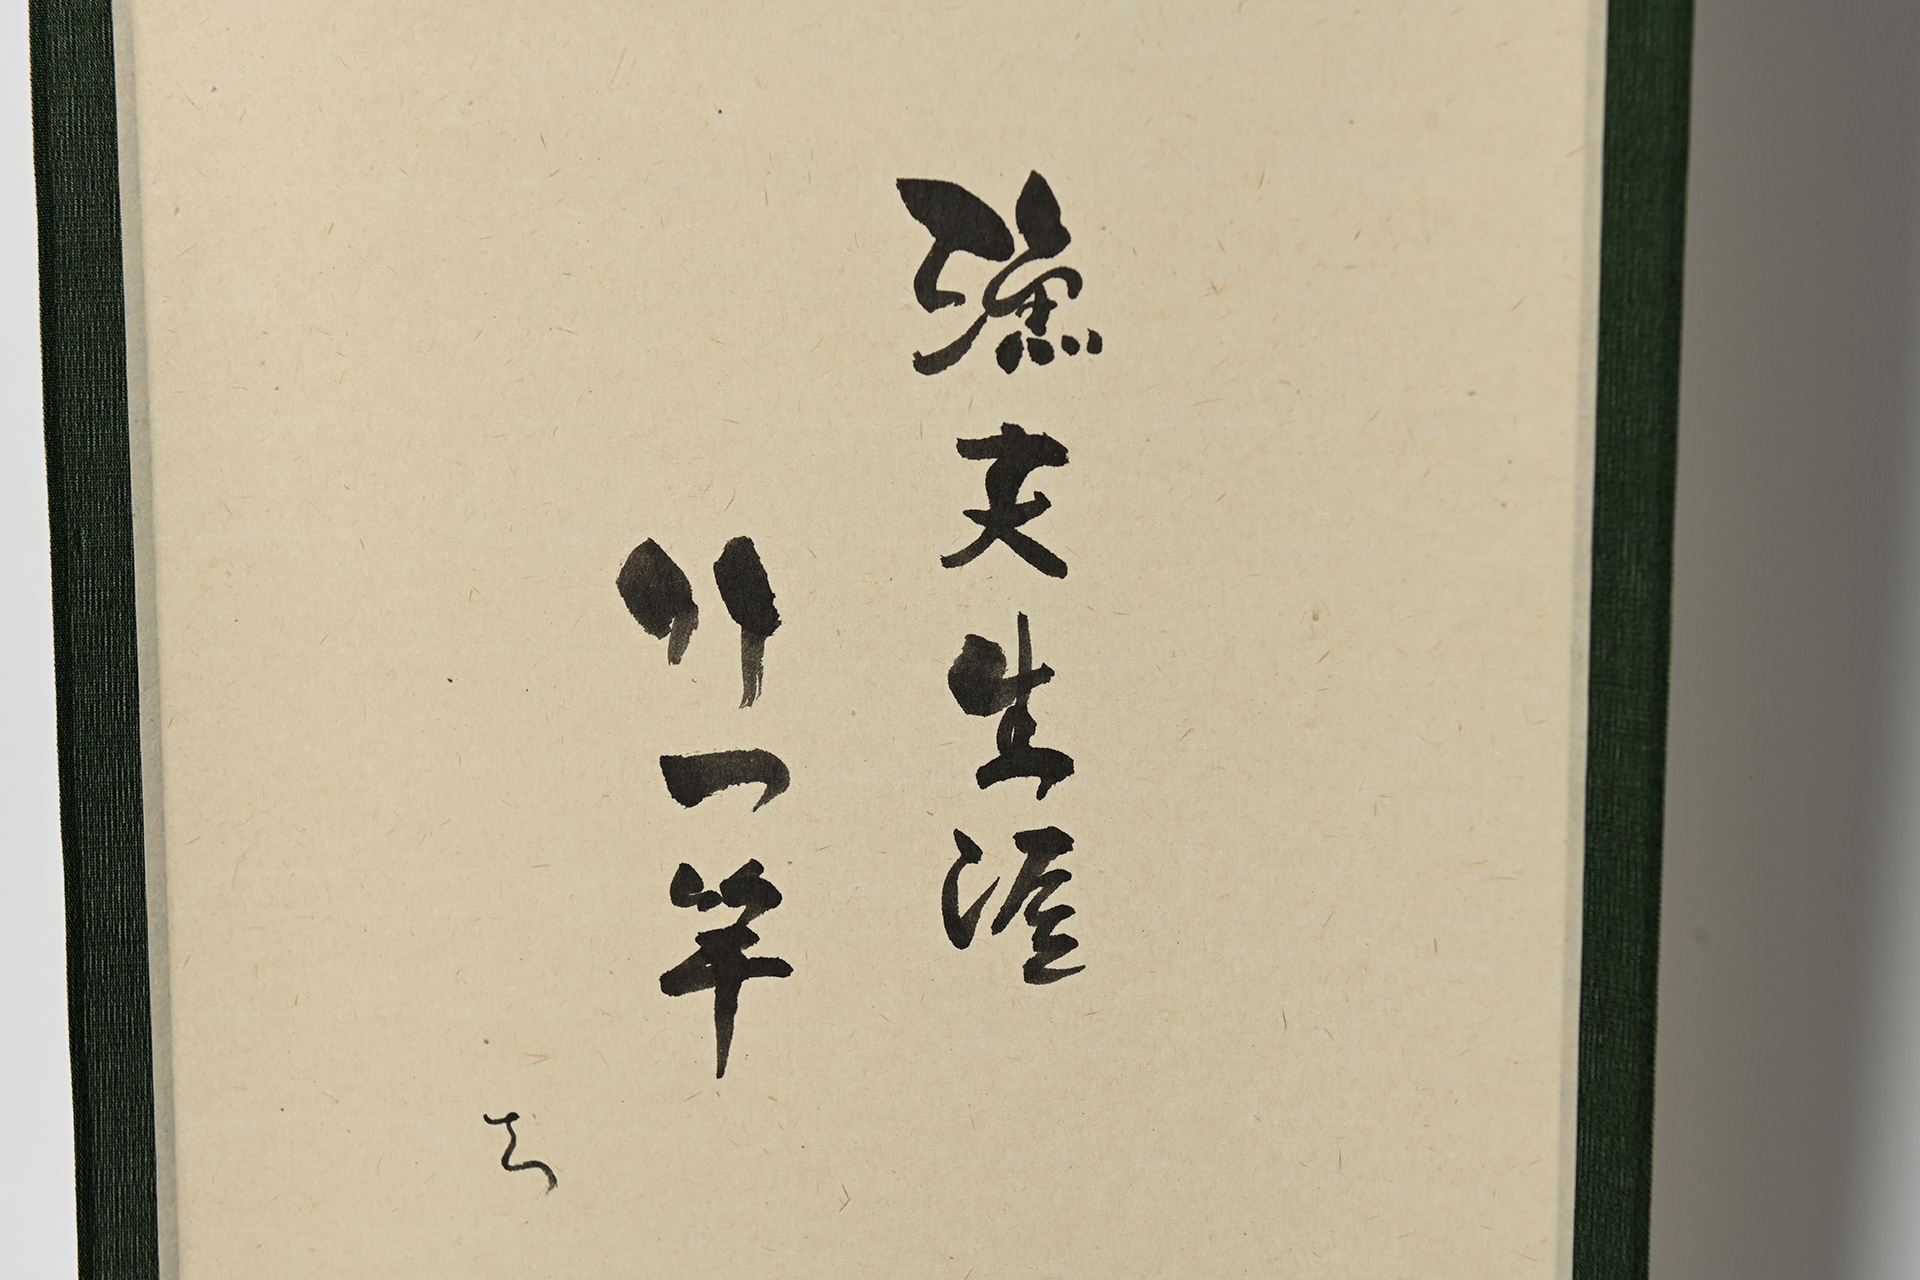 漁夫生涯
竹一竿